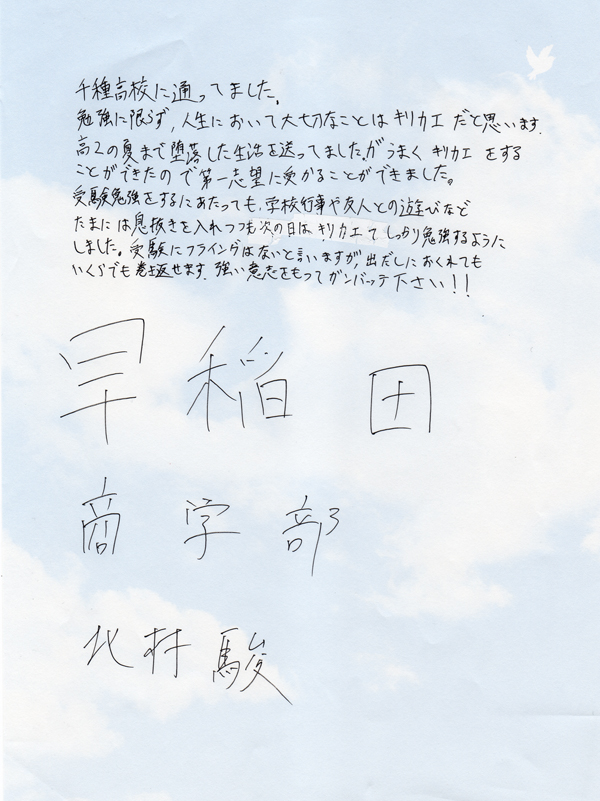 千種高校に通ってました。
勉強に限らず,人生において大切なことはキリカエだと思います.
高2の夏まで堕落した生活を送ってました。がうまくキリカエをする
ことができたので第一志望に受かることができました。
受験勉強をするにあたっても,学校行事や友人との遊びなど
たまには息抜きを入れつつも次の日はキリカエてしっかり勉強するように
しました。受験にフライングはないと言いますが,出だしにおくれても
いくらでも巻き返せます.強い意志をもってガンバッテ下さい!!
早稲田
商学部
北村駿